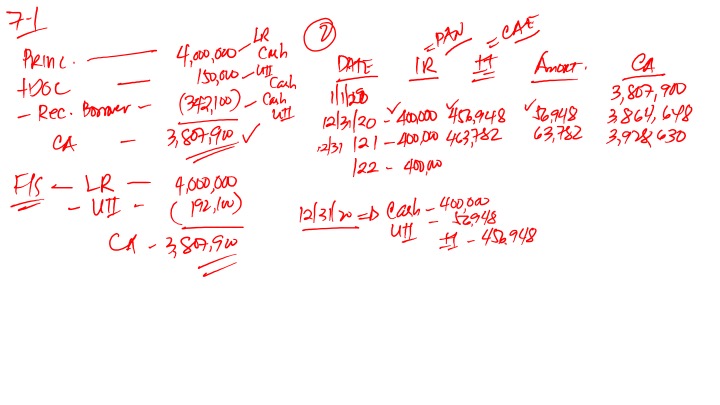 7-1
Princ. — 4,000,000 - LR Cash
+DOC — 150,000 - UII Cash
- Rec. Borrower - (342,100) - Cash UII
CA - 3,807,900 ✓
F/S ← LR — 4,000,000
- UII - (192,100)
CA - 3,807,900
②
= PAN = CAE
DATE IR II Amort. CA
1/1/20 3,807,900
12/31/20 - ✓400,000 ✓456,948 ✓56,948 3,864,848
12/31 /21 - 400,000 463,782 63,782 3,928,630
/22 - 400,00
12/31/20 => Cash - 400,000
UII - 56,948
II - 456,948